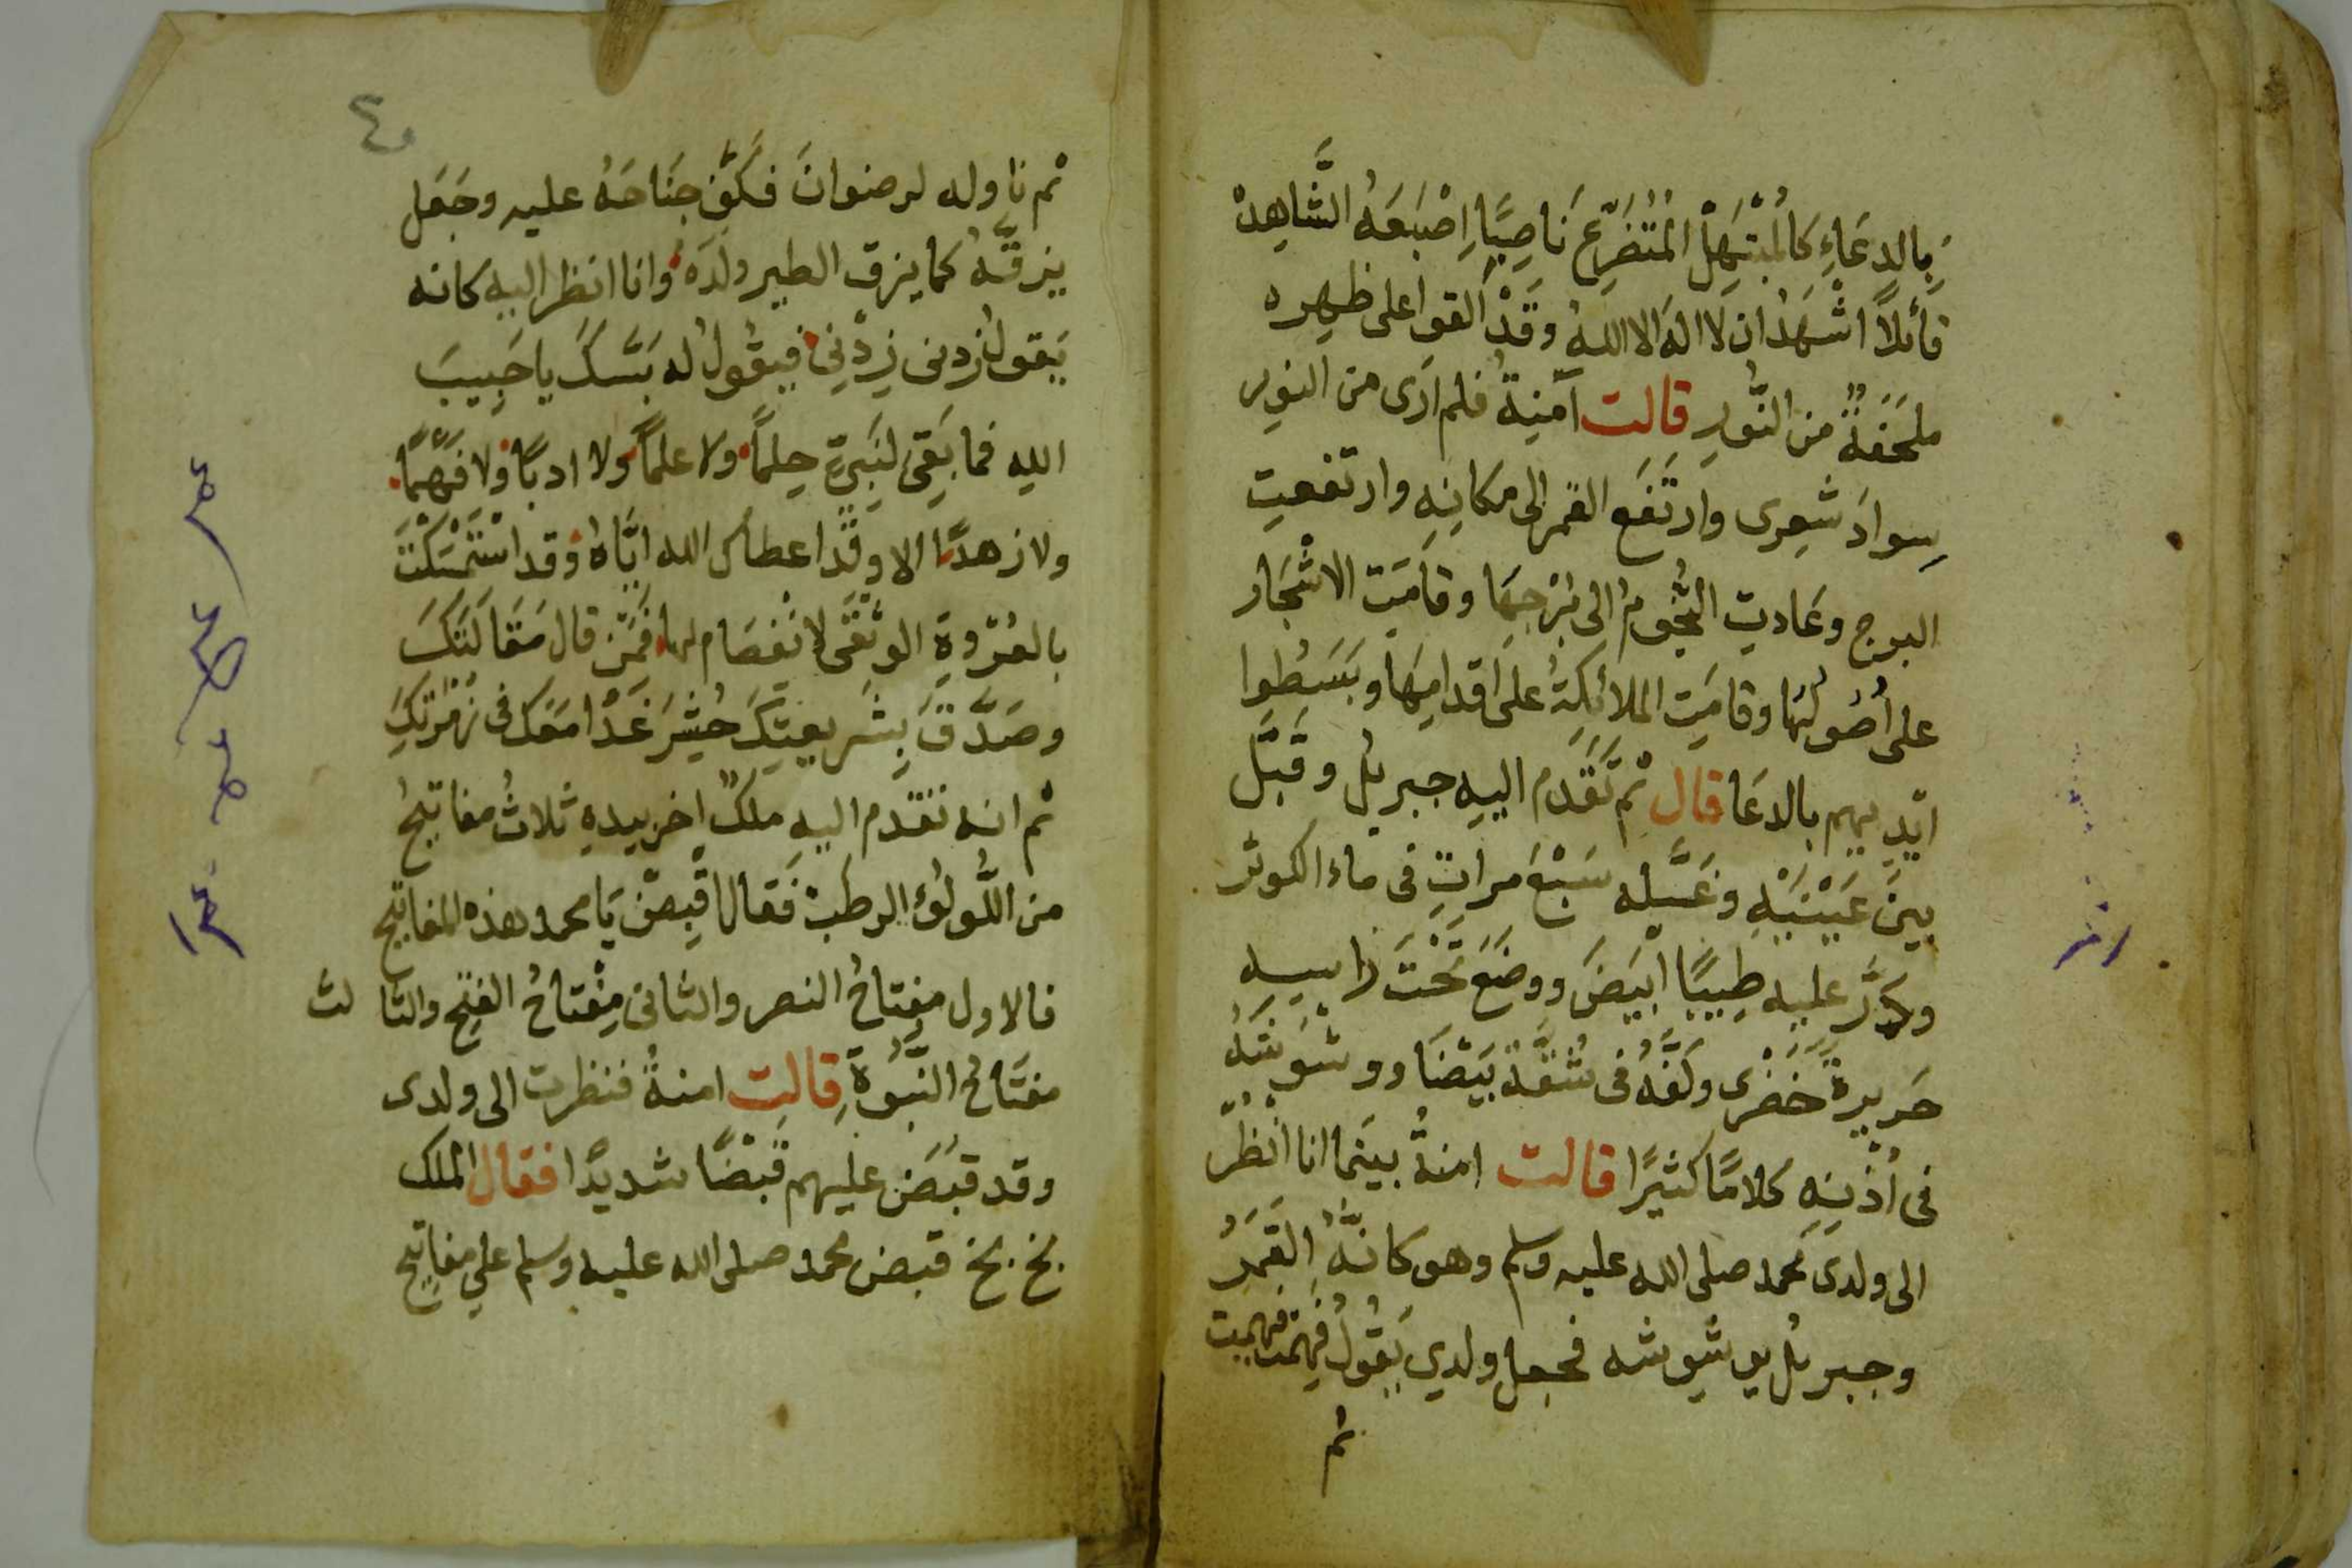 بِالدعَاءِ كَالمُبْتَهِلْ المُتُضَرِّعْ نَاصِبًا اِصْبَعَهُ الشَّاهِدْ
قَائلاً اشْهَدُ ان لا اله الا اللهُ وقَدْ القوا على ظهره
ملحَفةٌ من النُّورِ قالت آمنِةُ فلم ارَى من النور
سوادَ شعرِى وارتَفَع القمر الى مكانِهِ وارتفعت
البرج وعَادت النُّجُومُ الى بُرْجِهَا وقامَت الاشْجَار
على اُصُولهَا وقامَت الملائكةُ على اقدامِهَا وبَسَطُوا
ايْدِيهم بالدعَا قال ثم تَقَدَم اليهِ جبريلُ وقَبَّل
بينَ عَيْنَيْهِ وغَسَّله سَبْعَ مراتٍ فى ماء الكوثر
وذَرَّ عليه طِيبًا ابيَضَ ووضَعَ تحْتَ راسه
حَريرةً خضْرى وكَفَّهُ فى شُقَّةَ بَيْضَا ووشْوَشَهُ
فى اُذْنِهِ كلامًا كثيرًا قالت امنةُ بينما انا انْظُرُ
الى ولدى محمد صلى الله عليه وسلم وهو كانَّهُ القَمَرُ
وجبريلُ يوشوشه فجعل ولدي يَقُولُ فهِمْت فهمت
ثم
٤
ثم ناوله لرضوانَ فكَفَّ جنَاحَهُ عليه وجَعَل
يزقَّهُ كما يزق الطير ولدَه وانا انظر اليه كانه
يَقول زدنى زِدْنِى فيقُولُ له بَسَّكَ يا حَبِيبَ
الله فما بَقِىَ لنَبِىٍّ حِلمًا ولا علمًا ولا ادبًا ولا فَهْمًا
ولا زهدًا الا وقَد اعطاك الله ايَّاهُ وقد اسْتَمْسَكْتَ
بالعُرْوةِ الوثْقَى لا انْفصَام لها فَمَنْ قال مَقَالَتَكَ
وصَدَّقَ بِشَريعتِكَ حُشِرَ غَدًا معَك فى زمْرتكَ
ثم انه تقدم اليه ملكٌ اخر بيدهِ ثلاثُ مفاتيحُ
من اللُّولُؤ الرطب فَقال اقْبِضْ يَا محمد هذه المفاتيح
فالاول مفتاحُ النصر والثانى مِفْتاحُ الفتح والثالث
مفتَاحُ النبُّوةِ قالت امنةُ فنظرت الى ولدى
وقد قبَضَ عليهم قَبْضًا شديدًا فقال الملك
بخ بخ قبض محمد صلى الله عليه وسلم على مفاتيح